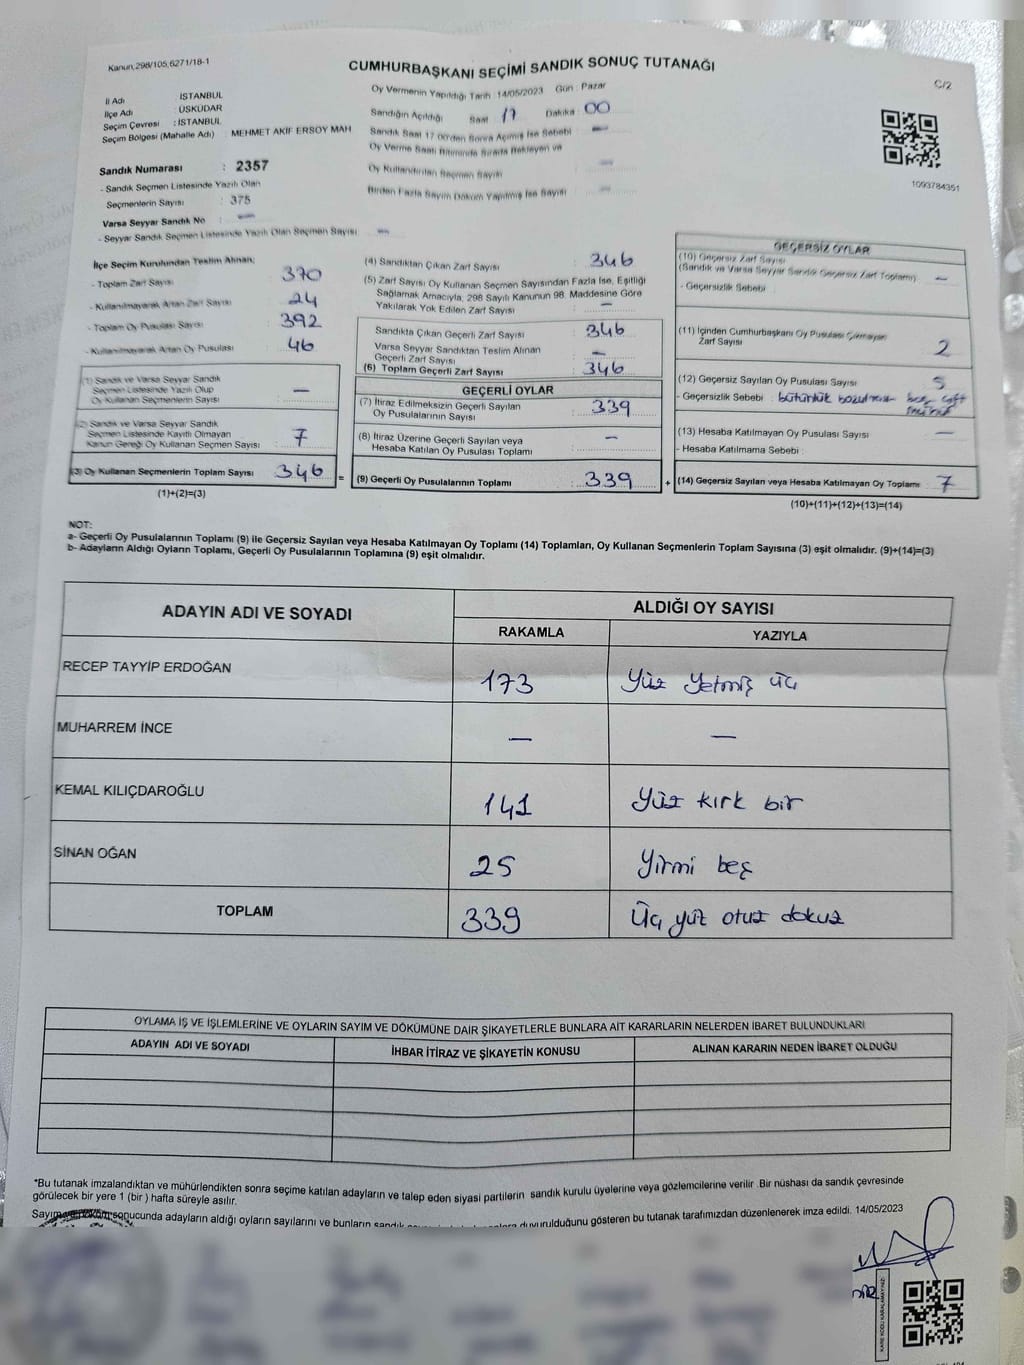 Kanun,298/105,6271/18-1
CUMHURBAŞKANI SEÇİMİ SANDIK SONUÇ TUTANAĞI
C/2
İl Adı : İSTANBUL
İlçe Adı : ÜSKÜDAR
Seçim Çevresi : İSTANBUL
Seçim Bölgesi (Mahalle Adı) : MEHMET AKİF ERSOY MAH
Oy Vermenin Yapıldığı Tarih : 14/05/2023 Gün : Pazar
Sandığın Açıldığı Saat 17 Dakika 00
Sandık Saat 17:00'den Sonra Açılmış İse Sebebi —
Oy Verme Saati Bitiminde Sırada Bekleyen ve
Oy Kullandırılan Seçmen Sayısı —
Birden Fazla Sayım Döküm Yapılmış İse Sayısı —
1093784351
Sandık Numarası : 2357
- Sandık Seçmen Listesinde Yazılı Olan
Seçmenlerin Sayısı : 375
Varsa Seyyar Sandık No : —
- Seyyar Sandık Seçmen Listesinde Yazılı Olan Seçmen Sayısı : —
İlçe Seçim Kurulundan Teslim Alınan;
- Toplam Zarf Sayısı : 370
- Kullanılmayarak Artan Zarf Sayısı : 24
- Toplam Oy Pusulası Sayısı : 392
- Kullanılmayarak Artan Oy Pusulası : 46
(1) Sandık ve Varsa Seyyar Sandık
Seçmen Listesinde Yazılı Olup
Oy Kullanan Seçmenlerin Sayısı : —
(2) Sandık ve Varsa Seyyar Sandık
Seçmen Listesinde Kayıtlı Olmayan
Kanun Gereği Oy Kullanan Seçmen Sayısı : 7
(3) Oy Kullanan Seçmenlerin Toplam Sayısı : 346
(1)+(2)=(3)
(4) Sandıktan Çıkan Zarf Sayısı : 346
(5) Zarf Sayısı Oy Kullanan Seçmen Sayısından Fazla İse, Eşitliği
Sağlamak Amacıyla, 298 Sayılı Kanunun 98. Maddesine Göre
Yakılarak Yok Edilen Zarf Sayısı : —
Sandıkta Çıkan Geçerli Zarf Sayısı : 346
Varsa Seyyar Sandıktan Teslim Alınan
Geçerli Zarf Sayısı : —
(6) Toplam Geçerli Zarf Sayısı : 346
GEÇERLİ OYLAR
(7) İtiraz Edilmeksizin Geçerli Sayılan
Oy Pusulalarının Sayısı : 339
(8) İtiraz Üzerine Geçerli Sayılan veya
Hesaba Katılan Oy Pusulası Toplamı : —
= (9) Geçerli Oy Pusulalarının Toplamı : 339
GEÇERSİZ OYLAR
(10) Geçersiz Zarf Sayısı
(Sandık ve Varsa Seyyar Sandık Geçersiz Zarf Toplamı) : —
- Geçersizlik Sebebi :
(11) İçinden Cumhurbaşkanı Oy Pusulası Çıkmayan
Zarf Sayısı : 2
(12) Geçersiz Sayılan Oy Pusulası Sayısı : 5
- Geçersizlik Sebebi : bütünlük çift
(13) Hesaba Katılmayan Oy Pusulası Sayısı : —
- Hesaba Katılmama Sebebi :
+ (14) Geçersiz Sayılan veya Hesaba Katılmayan Oy Toplamı : 7
(10)+(11)+(12)+(13)=(14)
NOT:
a- Geçerli Oy Pusulalarının Toplamı (9) ile Geçersiz Sayılan veya Hesaba Katılmayan Oy Toplamı (14) Toplamları, Oy Kullanan Seçmenlerin Toplam Sayısına (3) eşit olmalıdır. (9)+(14)=(3)
b- Adayların Aldığı Oyların Toplamı, Geçerli Oy Pusulalarının Toplamına (9) eşit olmalıdır.
ADAYIN ADI VE SOYADI
ALDIĞI OY SAYISI
RAKAMLA YAZIYLA
RECEP TAYYİP ERDOĞAN 173 Yüz Yetmiş üç
MUHARREM İNCE — —
KEMAL KILIÇDAROĞLU 141 Yüz kırk bir
SİNAN OĞAN 25 Yirmi beş
TOPLAM 339 Üç yüz otuz dokuz
OYLAMA İŞ VE İŞLEMLERİNE VE OYLARIN SAYIM VE DÖKÜMÜNE DAİR ŞİKAYETLERLE BUNLARA AİT KARARLARIN NELERDEN İBARET BULUNDUKLARI
ADAYIN ADI VE SOYADI İHBAR İTİRAZ VE ŞİKAYETİN KONUSU ALINAN KARARIN NEDEN İBARET OLDUĞU
*Bu tutanak imzalandıktan ve mühürlendikten sonra seçime katılan adayların ve talep eden siyasi partilerin sandık kurulu üyelerine veya gözlemcilerine verilir .Bir nüshası da sandık çevresinde
görülecek bir yere 1 (bir ) hafta süreyle asılır.
sonucunda adayların aldığı oyların sayılarını ve bunların duyurulduğunu gösteren bu tutanak tarafımızdan düzenlenerek imza edildi. 14/05/2023
KARE KODU KARALAMAYINIZ!